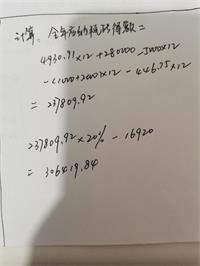 计算、全年应纳税所得额=
4930.91×12+280000-5000×12
-(1000+2000)×12-446.75×12
=237809.92
237809.92×20%-16920
=306419.84